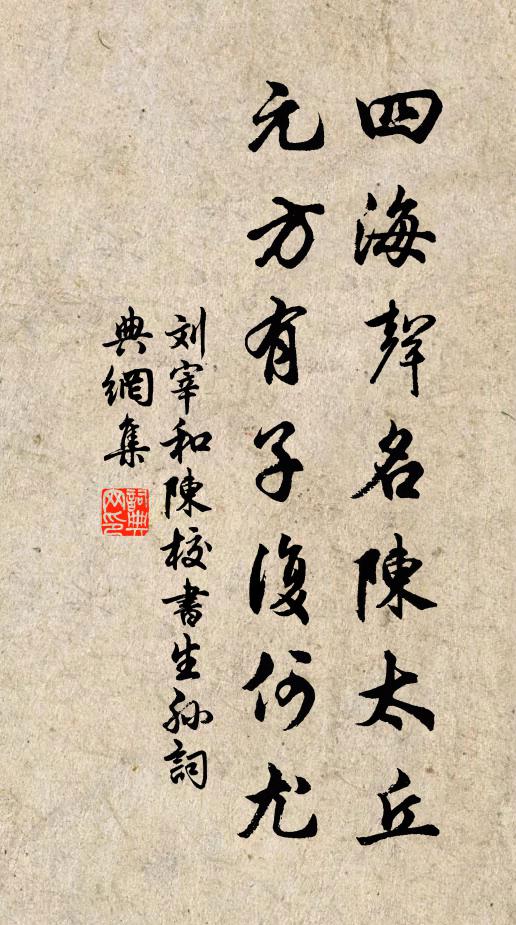 四海聲名陳太丘
元方有子復何尤
刘宰和陳校書生孙詞
典網集
詞典
网印